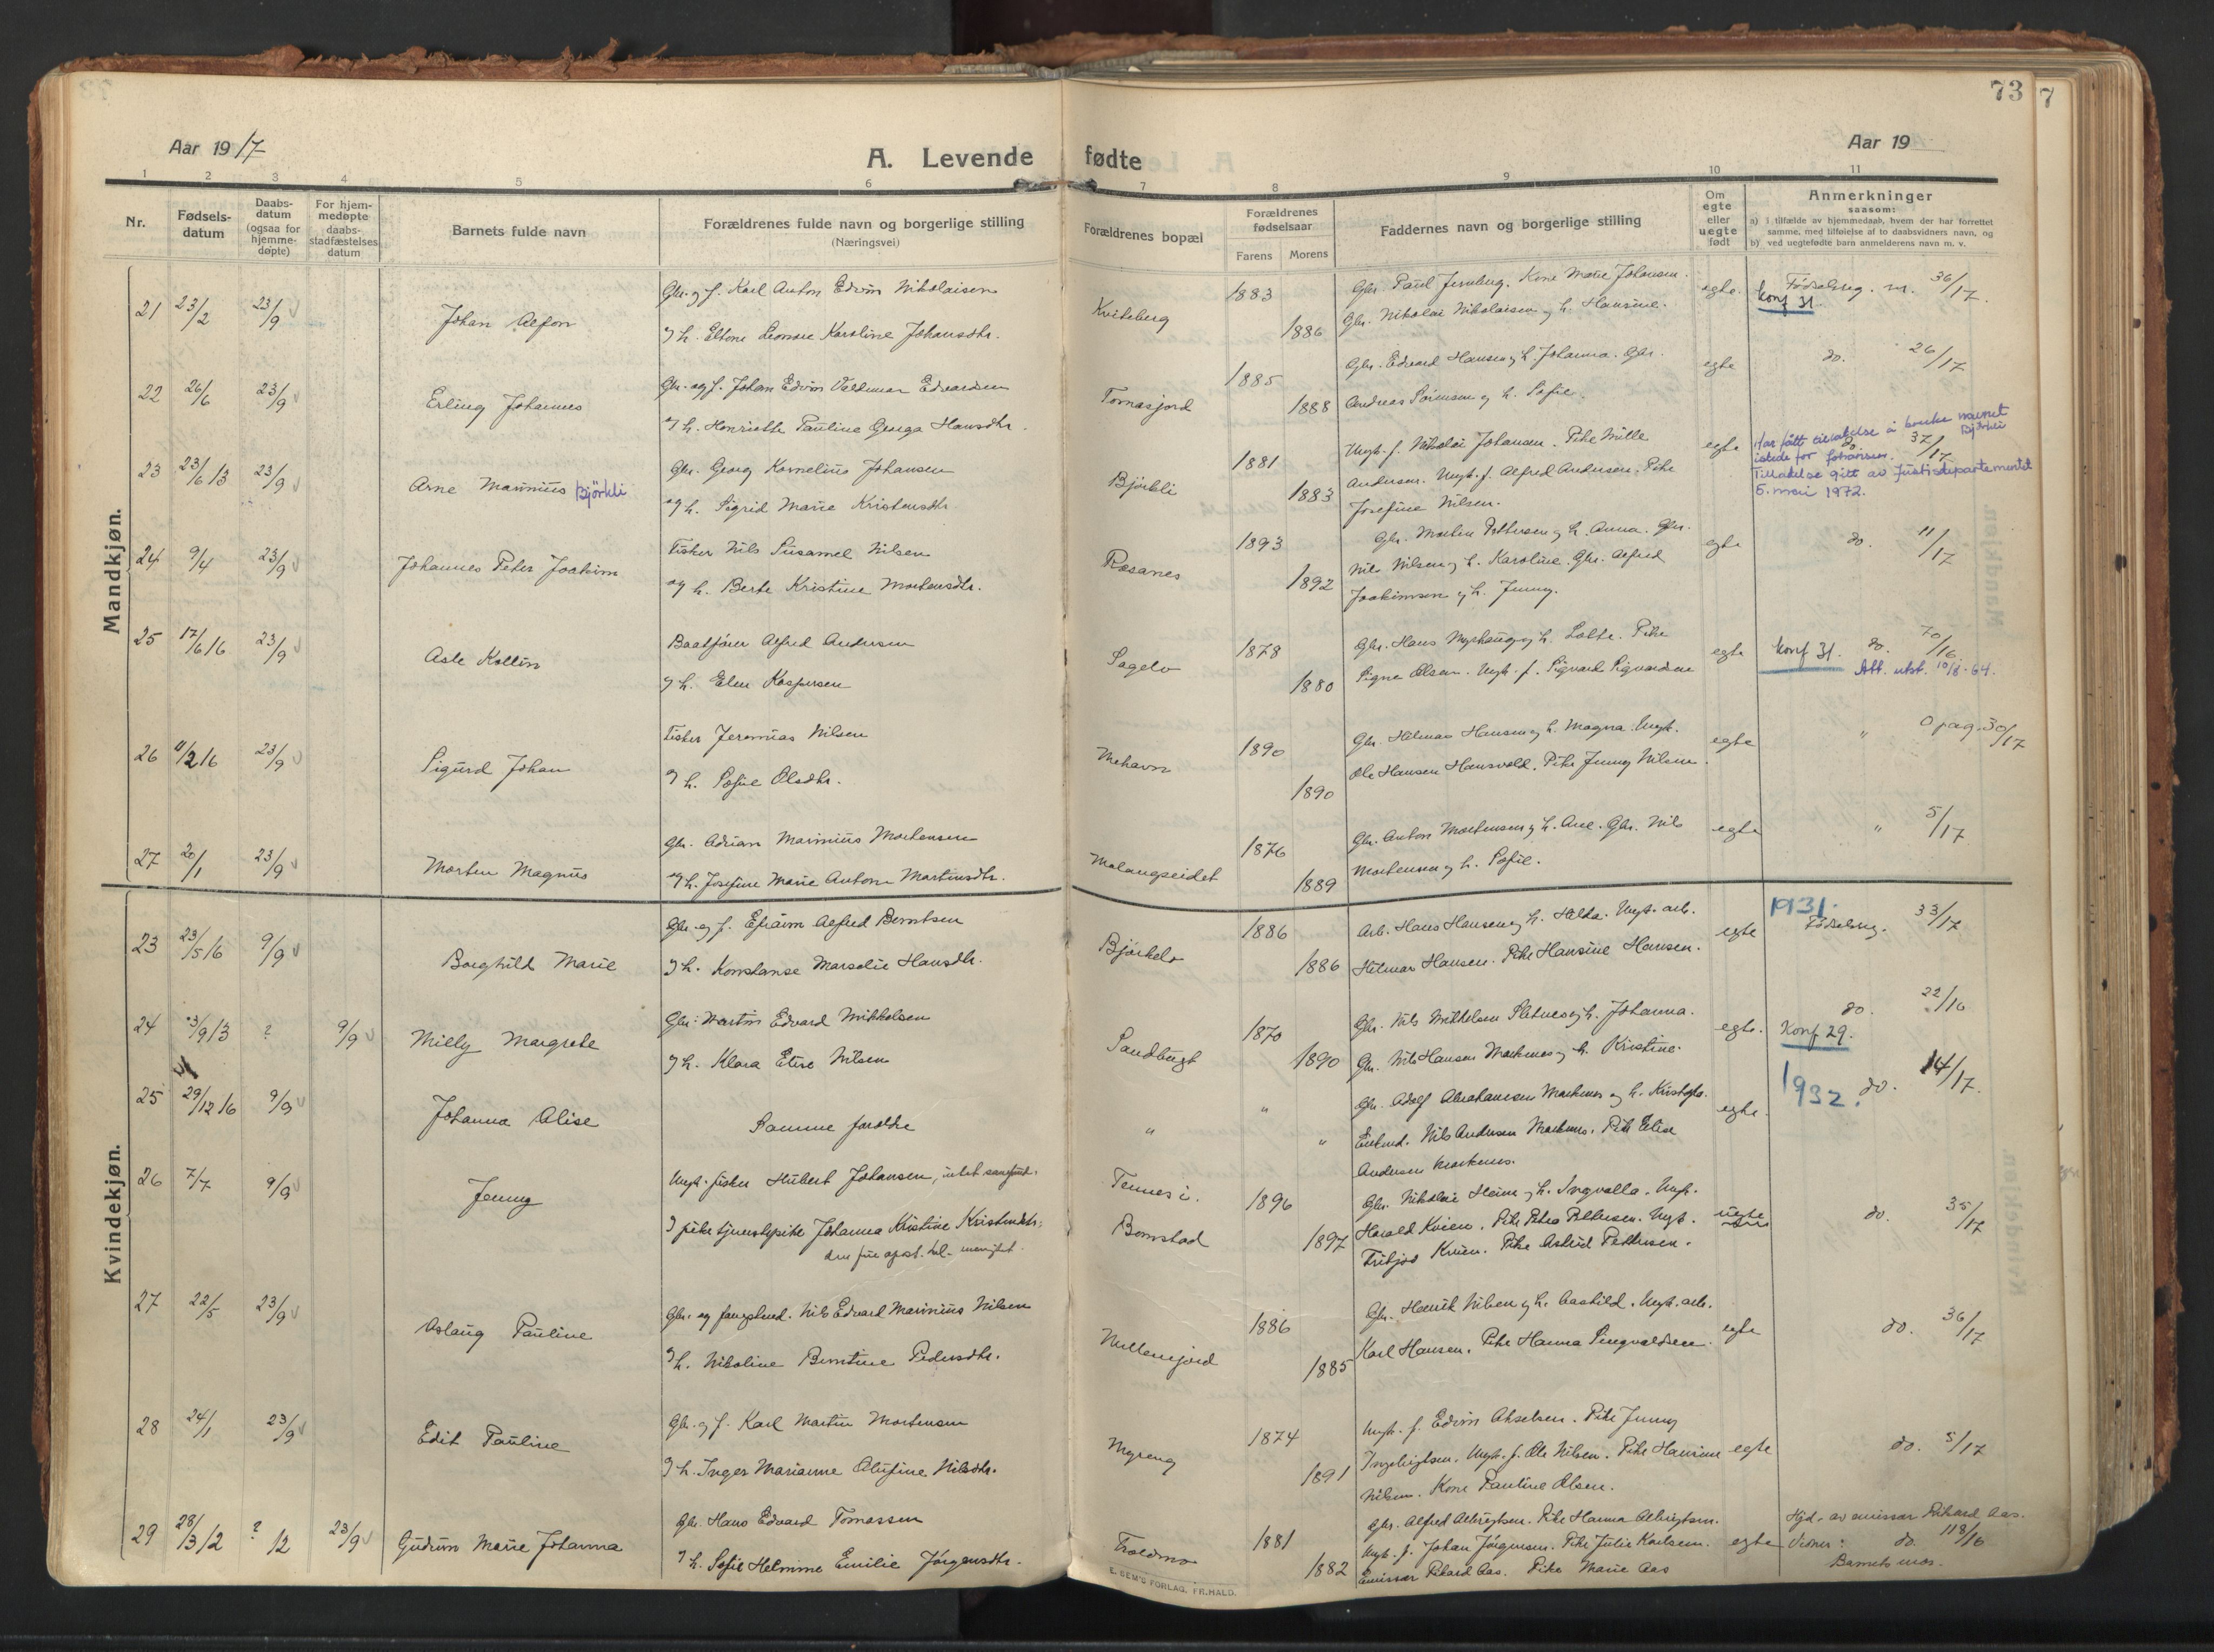 73 7
Aar 1917
A. Levende fødte
Aar 19
1 2 3 4 5 6 7 8 9 10 11
Nr.
Fødsels-
datum
Daabs-
datum
(ogsaa for
hjemme-
døpte)
For hjem-
medøpte
daabs-
stadfæstelses
datum
Barnets fulde navn
Forældrenes fulde navn og borgerlige stilling
(Næringsvei)
Forældrenes bopæl
Forældrenes
fødselsaar
Farens Morens
Faddernes navn og borgerlige stilling
Om
egte
eller
uegte
født
Anmerkninger
saasom:
a) I tilfælde av hjemmedaab, hvem der har forrettet
samme, med tilføielse af to daabsvidners navn, og
b) ved uegtefødte barn anmelderens navn m. v.
Mandkjøn.
21 23/2 23/9 Johan Alfon
Gbr. og f. Karl Anton Edvin Nikolaisen
og h. Eltone Leonore Karoline Johansdtr.
Kviteberg 1883 1886
Gbr. Paul Jernberg. Kone Marie Johansen.
Gbr. Nikolai Nikolaisen og h. Hansine.
egte. Fødselsreg. nr. 36/17.
Konf 31.
22 26/6 23/9 Erling Johannes
Gbr. og f. Johan Edvin Valdemar Edvardsen
og h. Henriette Pauline Georga Hansdtr.
Tomasjord 1885 1888
Gbr. Edvard Hansen og h. Johanna. Gbr.
Andreas Sørensen og h. Sofie.
egte do. 26/17
23 23/6 13 23/9 Arne Marinius Bjørkli
Gbr. Georg Kornelius Johansen
og h. Sigrid Marie Kristensdtr.
Bjørkli 1881 1883
Ungk. f. Nikolai Johansen. Pike Mille
Andersen. Ungk. f. Alfred Andersen. Pike
Josefine Nilsen.
egte do. 37/17
Har fått tillatelse å bruke navnet
Bjørkli
istede for Johansen.
Tillatelse gitt av Justisdepartementet
5. mai 1972.
24 9/4 23/9 Johannes Peter Joakim
Fisker Nils Susamel Nilsen
og h. Berte Kristine Mortensdtr.
Rosanes 1893 1892
Gbr. Morten Pettersen og h. Anna. Gbr.
Nils Nilsen og h. Karoline. Gbr. Alfred
Joakimsen og h. Jenny.
egte do. 11/17
25 17/6 16 23/9 Asle Kollin
Baatfører Alfred Andersen
og h. Elen Kaspersen
Sagelv 1878 1880
Gbr. Hans Myrhaug og h. Lotte. Pike
Signe Olsen. Ungk. f. Sigvard Sigvardsen
egte Konf 31. do. 70/16.
Att. utst. 10/8-64.
26 11/2 16 23/9 Sigurd Johan
Fisker Jeremias Nilsen
og h. Sofie Olsdtr.
Mehavn 1890 1890
Gbr. Hilmar Hansen og h. Magna. Ungk.
Ole Hansen Hansvold. Pike Jenny Nilsen.
egte " 0 pag. 30/17
27 20/1 23/9 Morten Magnus
Gbr. Adrian Marinius Mortensen
og h. Josefine Marie Antone Martinsdtr.
Malangseidet 1876 1889
Gbr. Anton Mortensen og h. Ane. Gbr. Nils
Mortensen og h. Sofie.
egte " 5/17
Kvindekjøn.
23 23/5 16 9/9 Borghild Marie
Gbr. og f. Efraim Alfred Berntsen
og h. Konstanse Marselie Hansdtr.
Bjørkelv 1886 1886
Arb. Hans Hansen og h. Hilda. Ungk. arb.
Hilmar Hansen. Pike Hansine Hansen.
egte 1931. Fødselsreg. 33/17
24 3/9 13 ? 9/9 Milly Margrete
Gbr. Martin Edvard Mikkelsen
og h. Klara Elise Nilsen
Sandbugt 1870 1890
Gbr. Nils Mikkelsen Sletnes og h. Johanna.
Gbr. Nils Hansen Markenes og h. Kristine.
egte. do. 22/16
Konf 29.
25 29/12 16 9/9 Johanna Alise
Samme foreldre
" " "
Gbr. Adolf Abrahamsen Markenes og h.
Enkemd. Nils Andersen Markenes. Pike Elise
Andersen Markenes.
egte. 1932. do. 14/17.
26 7/7 9/9 Jenny
Ungk. fisker Hubert Johansen, intet samfund.
og pike tjenestepike Johanna Kristine Kristensdtr.
den frie apost. luth. menighet.
Tennes i.
Bomstad 1896 1897
Gbr. Nikolai Heim og h. Ingvalla. Ungk.
Harald Kvien. Pike Petra Pettersen. Ungk.
Fritjof Kvien. Pike Astrid Pettersen.
uegte do. 35/17
27 22/5 23/9 Aslaug Pauline
Gbr. og fangstmd. Nils Edvard Marinius Nilsen
og h. Nikoline Berntine Pedersdtr.
Mellemjord 1886 1885
Gbr. Henrik Nilsen og h. Aashild. Ungk. arb.
Karl Hansen. Pike Hanna Singvaldsen.
egte do. 36/17
28 24/1 23/9 Edit Pauline
Gbr. og f. Karl Martin Mortensen
og h. Inger Marianne Olufine Nilsdtr.
Myreng 1874 1891
Ungk. f. Edvin Akselsen. Pike Jenny
Ingebrigtsen. Ungk. f. Ole Nilsen. Pike Hansine
Nilsen. Kone Pauline Olsen.
egte do. 5/17
29 28/3 12 ? 12 23/9 Gudrun Marie Johanna
Gbr. Hans Edvard Tomassen
og h. Sofie Helmine Emilie Jørgensdtr.
Troldmo 1881 1882
Gbr. Alfred Albrigtsen. Pike Hanna Albrigtsen.
Ungk. f. Johan Jørgensen. Pike Julie Karlsen.
Emissær Rikard Aas. Pike Marie Aas
egte Hjd. av emissær Rikard Aas.
Vidner: do. 118/16
Barnets mor.
E. SEM'S FORLAG, FR.HALD.